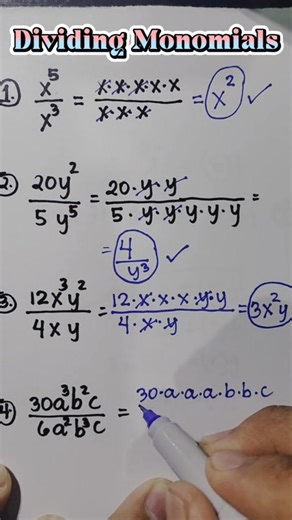 Dividing Monomials
1. x⁵/x³ = x·x·x·x·x/x·x·x = x² ✓
2. 20y²/5y⁵ = 20·y·y/5·y·y·y·y·y =
= 4/y³ ✓
3. 12x³y²/4xy = 12·x·x·x·y·y/4·x·y = 3x²y
4) 30a³b²c/6a²b³c = 30·a·a·a·b·b·c